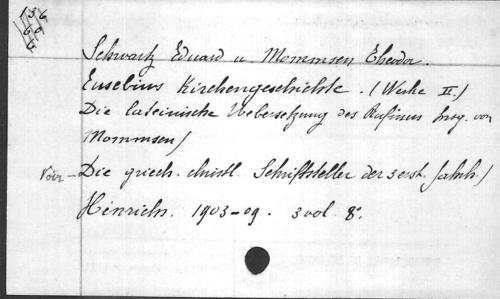 Schwartz Eduard u. Mommsen Theodor.
Eusebius Kirchengeschichte. (Werke II.)
Die lateinische Uebersetzung des Rufinus hrsg. von
Mommsen/
Voir — Die griech. christl. Schriftsteller der 3 erst. Jahrh./
Hinrichs. 1903-09. 3 vol. 8°.